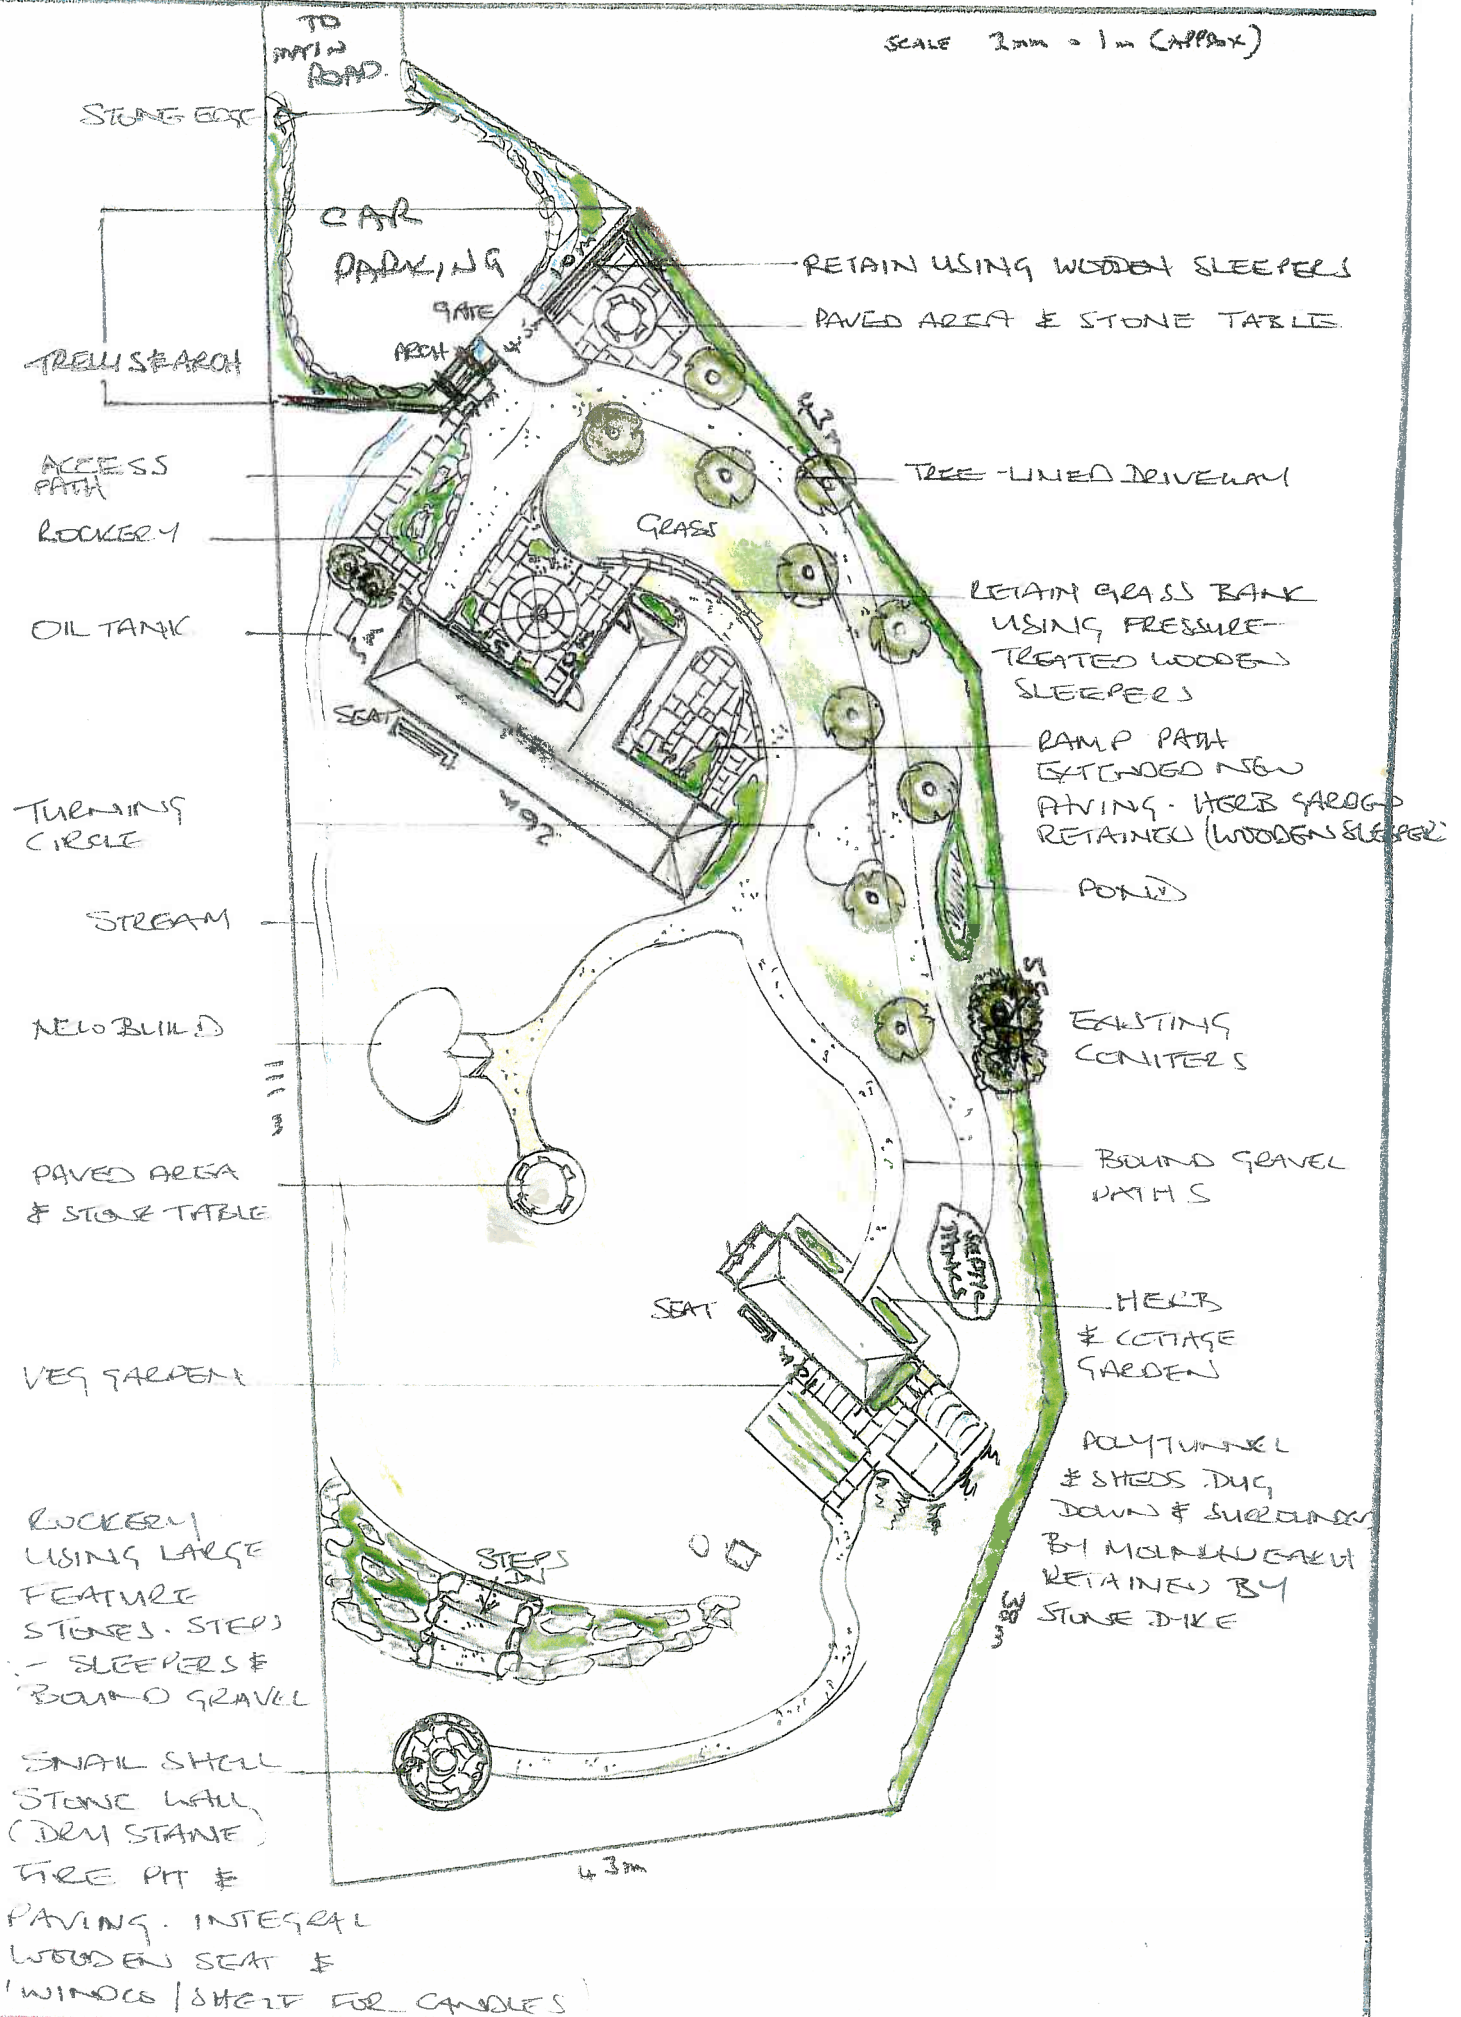 TO
MAIN
ROAD.
SCALE 2mm = 1m (APPROX)
STONE EDGE
CAR
PARKING
10m
RETAIN USING WOODEN SLEEPERS
GATE
4.5m
PAVED AREA & STONE TABLE
ARCH
TRELLIS & ARCH
42m
ACCESS
PATH
TREE-LINED DRIVEWAY
ROCKERY
GRASS
RETAIN GRASS BANK
USING PRESSURE-
TREATED WOODEN
SLEEPERS
OIL TANK
SEAT
26m
RAMP PATH
EXTENDED NEW
PAVING. HERB GARDEN
RETAINED (WOODEN SLEEPER
TURNING
CIRCLE
POND
STREAM
55
NEW BUILD
EXISTING
CONIFERS
111 m
PAVED AREA
& STONE TABLE
BOUND GRAVEL
PATHS
SEPTIC
TANKS
SEAT
HERB
& COTTAGE
GARDEN
VEG GARDEN
POLYTUNNEL
& SHEDS. DUG
DOWN & SURROUNDED
BY
RETAINED BY
STONE DYKE
38m
ROCKERY
USING LARGE
FEATURE
STONES. STEPS
- SLEEPERS &
BOUND GRAVEL
STEPS
SNAIL SHELL
STONE WALL
(DRY STANE)
FIRE PIT &
PAVING. INTEGRAL
WOODEN SEAT &
'WINDOW/SHELF FOR CANDLES
43m